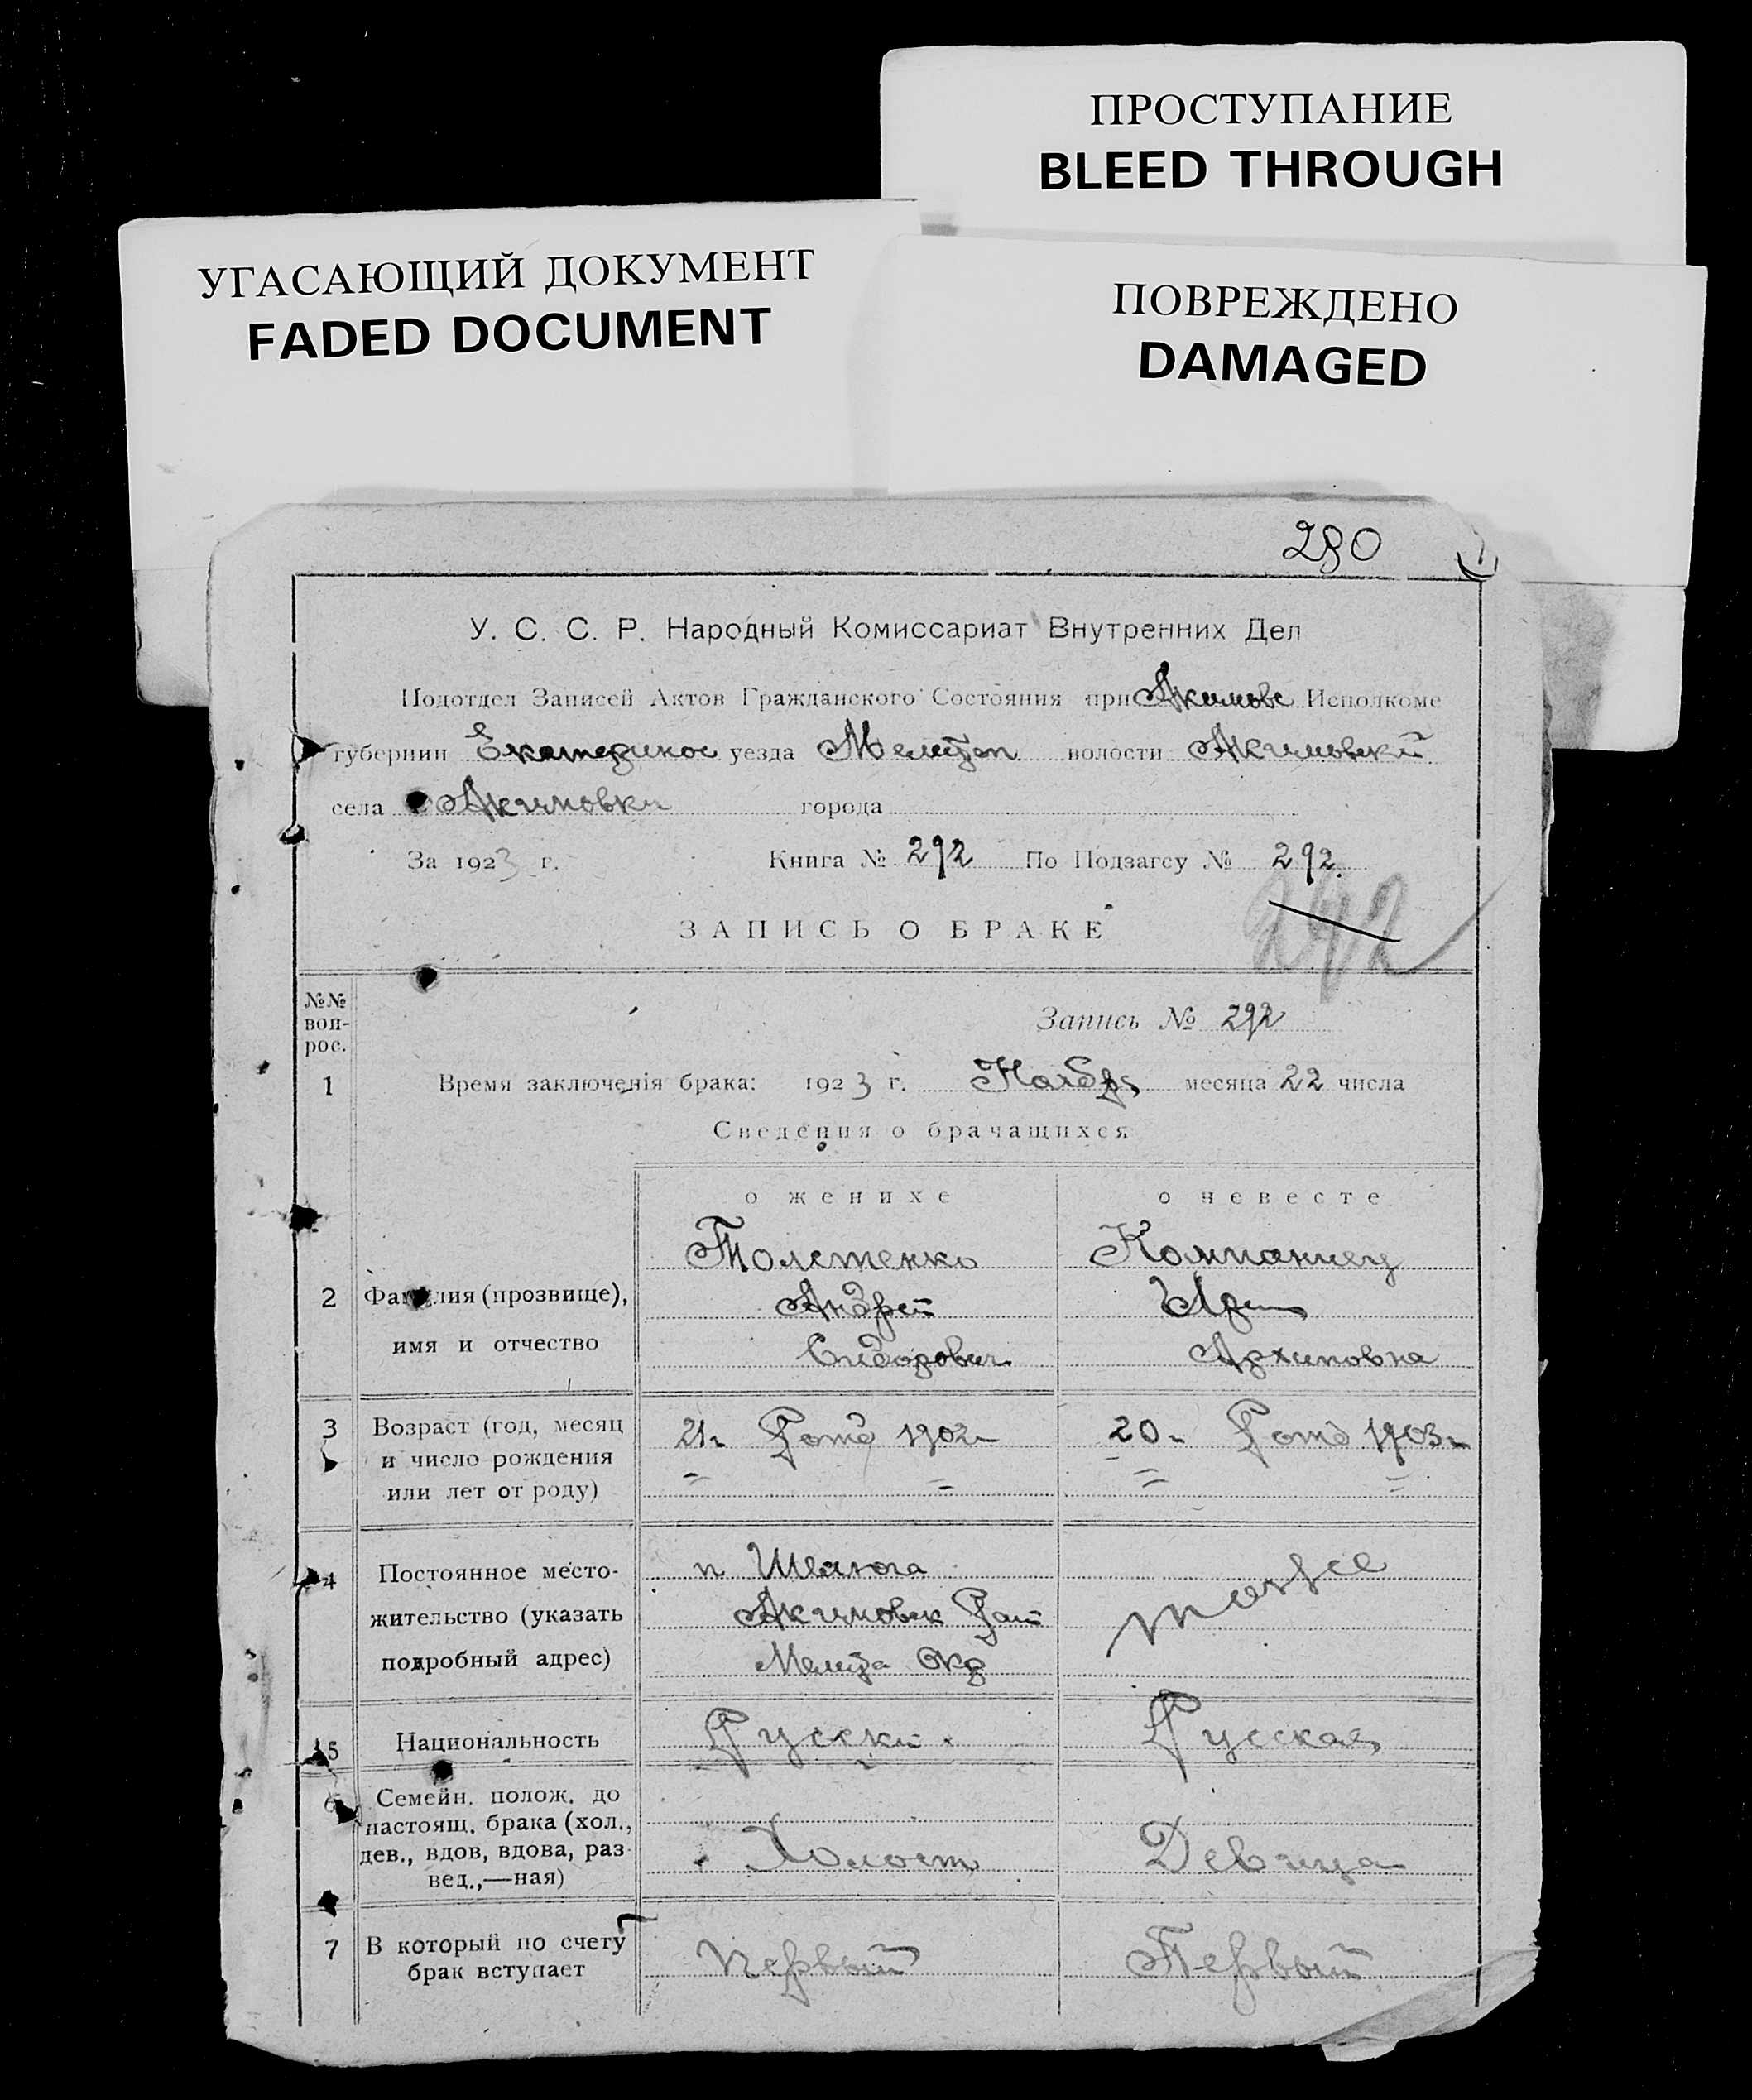 ПРОСТУПАНИЕ
BLEED THROUGH
УГАСАЮЩИЙ ДОКУМЕНТ
FADED DOCUMENT
ПОВРЕЖДЕНО
DAMAGED
280
У. С. С. Р. Народный Комиссариат Внутренних Дел
Подотдел Записей Актов Гражданского Состояния при Акимовс Исполкоме
губернии Екатеринос уезда Мелитоп волости Акимовский
села Акимовки города
За 1923 г. Книга № 292 По Подзагсу № 292.
292
ЗАПИСЬ О БРАКЕ
№№ воп-рос.
Запись № 292
1 Время заключенія брака: 1923 г. Ноября месяца 22 числа
Сведения о брачащихся
о женихе о невесте
Толстенко Компаниец
2 Фамилия (прозвище), Андрей
имя и отчество Сидорович Архиповна
3 Возраст (год, месяц 21 г. Рожд 1902 г. 20 г. Рожд 1903 г.
и число рождения
или лет от роду)
4 Постоянное место- п Шелюга
жительство (указать Акимовск Рай тоже
подробный адрес) Мелито Окр
5 Национальность Русский Русская
6 Семейн. полож. до
настоящ. брака (хол.,
дев., вдов, вдова, раз- Холост Девица
вед.,—ная)
7 В который по счету Первый Первый
брак вступает